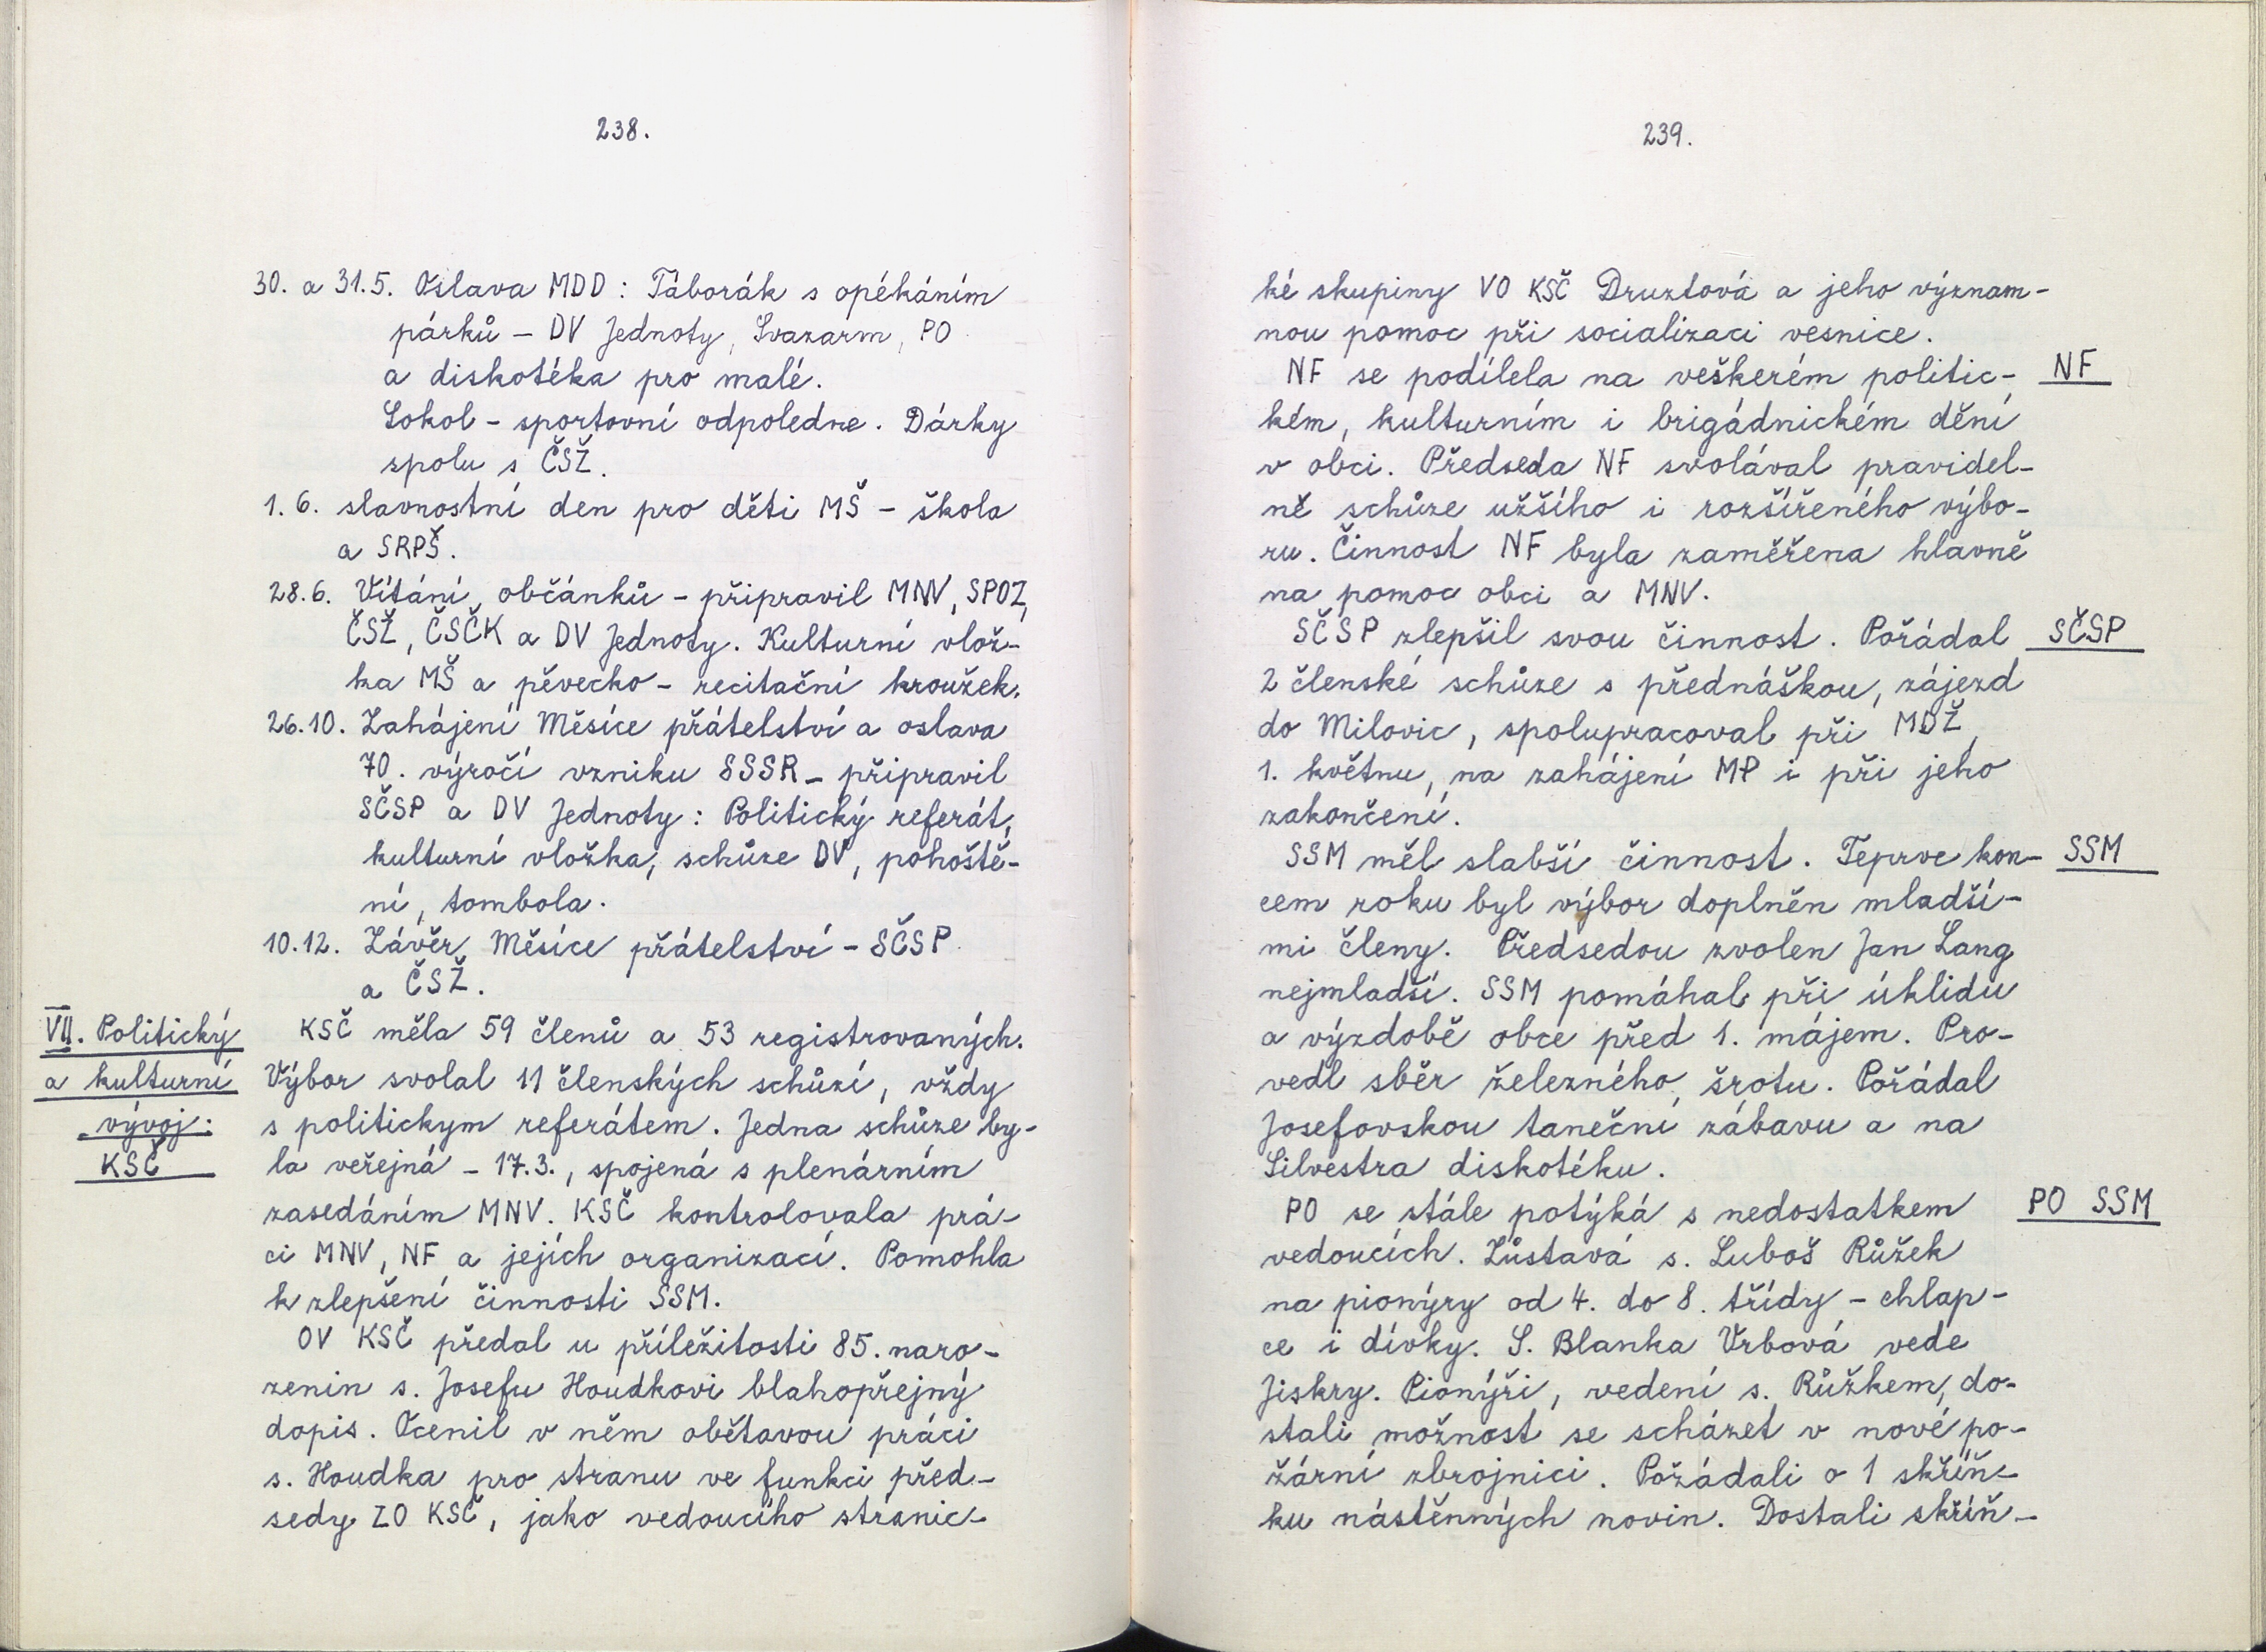 238.
30. a 31.5. Oslava MDD: Táborák s opékáním
párků – DV Jednoty, Svazarm, PO
a diskotéka pro malé.
Sokol – sportovní odpoledne. Dárky
spolu s ČSŽ.
1. 6. slavnostní den pro děti MŠ – škola
a SRPŠ.
28.6. Vítání občánků – připravil MNV, SPOZ,
ČSŽ, ČSČK a DV Jednoty. Kulturní vlož-
ka MŠ a pěvecko – recitační kroužek.
26.10. Zahájení Měsíce přátelství a oslava
70. výročí vzniku SSSR – připravil
SČSP a DV Jednoty: Politický referát,
kulturní vložka, schůze DV, pohoště-
ní, tombola.
10.12. Závěr Měsíce přátelství – SČSP
a ČSŽ.
VII. Politický
a kulturní
vývoj:
KSČ
KSČ měla 59 členů a 53 registrovaných.
Výbor svolal 11 členských schůzí, vždy
s politickym referátem. Jedna schůze by-
la veřejná – 17.3., spojená s plenárním
zasedáním MNV. KSČ kontrolovala prá-
ci MNV, NF a jejích organizací. Pomohla
k zlepšení činnosti SSM.
OV KSČ předal u příležitosti 85. naro-
zenin s. Josefu Houdkovi blahopřejný
dopis. Ocenil v něm obětavou práci
s. Houdka pro stranu ve funkci před-
sedy ZO KSČ, jako vedoucího stranic-
239.
ké skupiny VO KSČ Druztová a jeho význam-
nou pomoc při socializaci vesnice.
NF se podílela na veškerém politic- NF
kém, kulturním i brigádnickém dění
v obci. Předseda NF svolával pravidel-
ně schůze užšího i rozšířeného výbo-
ru. Činnost NF byla zaměřena hlavně
na pomoc obci a MNV.
SČSP zlepšil svou činnost. Pořádal SČSP
2 členské schůze s přednáškou, zájezd
do Milovic, spolupracoval při MDŽ,
1. květnu, na zahájení MP i při jeho
zakončení.
SSM měl slabší činnost. Teprve kon- SSM
cem roku byl výbor doplněn mladší-
mi členy. Předsedou zvolen Jan Lang
nejmladší. SSM pomáhal při úklidu
a výzdobě obce před 1. májem. Pro-
vedl sběr železného šrotu. Pořádal
Josefovskou taneční zábavu a na
Silvestra diskotéku.
PO se stále potýká s nedostatkem PO SSM
vedoucích. Zůstavá s. Luboš Růžek
na pionýry od 4. do 8. třídy – chlap-
ce i dívky. S. Blanka Vrbová vede
Jiskry. Pionýři, vedení s. Růžkem, do-
stali možnost se scházet v nové po-
žární zbrojnici. Požádali o 1 skříň-
ku nástěnných novin. Dostali skříň-